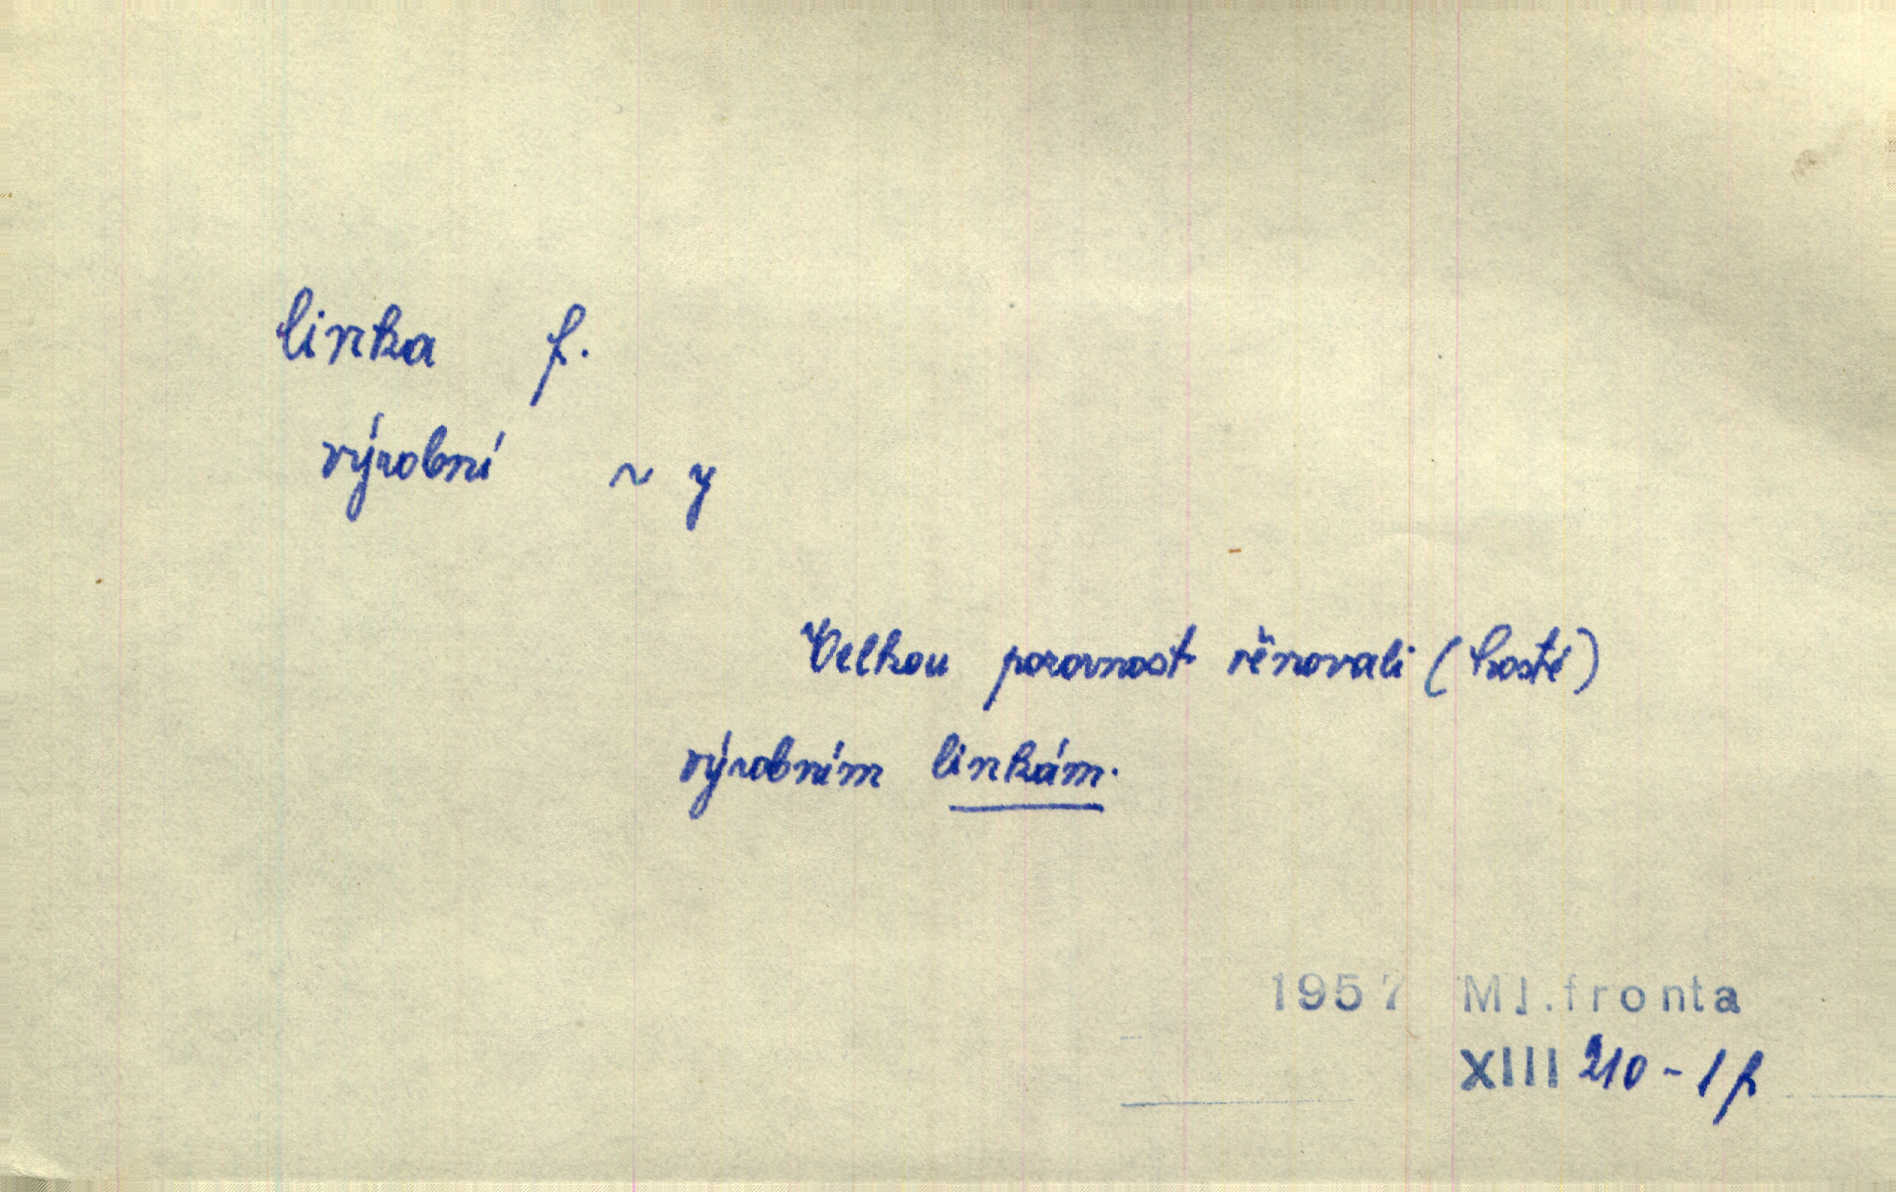 linka f.
výrobní ~ y
Velkou pozornost věnovali (hosté)
výrobním linkám.
1957 Ml.fronta
XIII 210-1 f